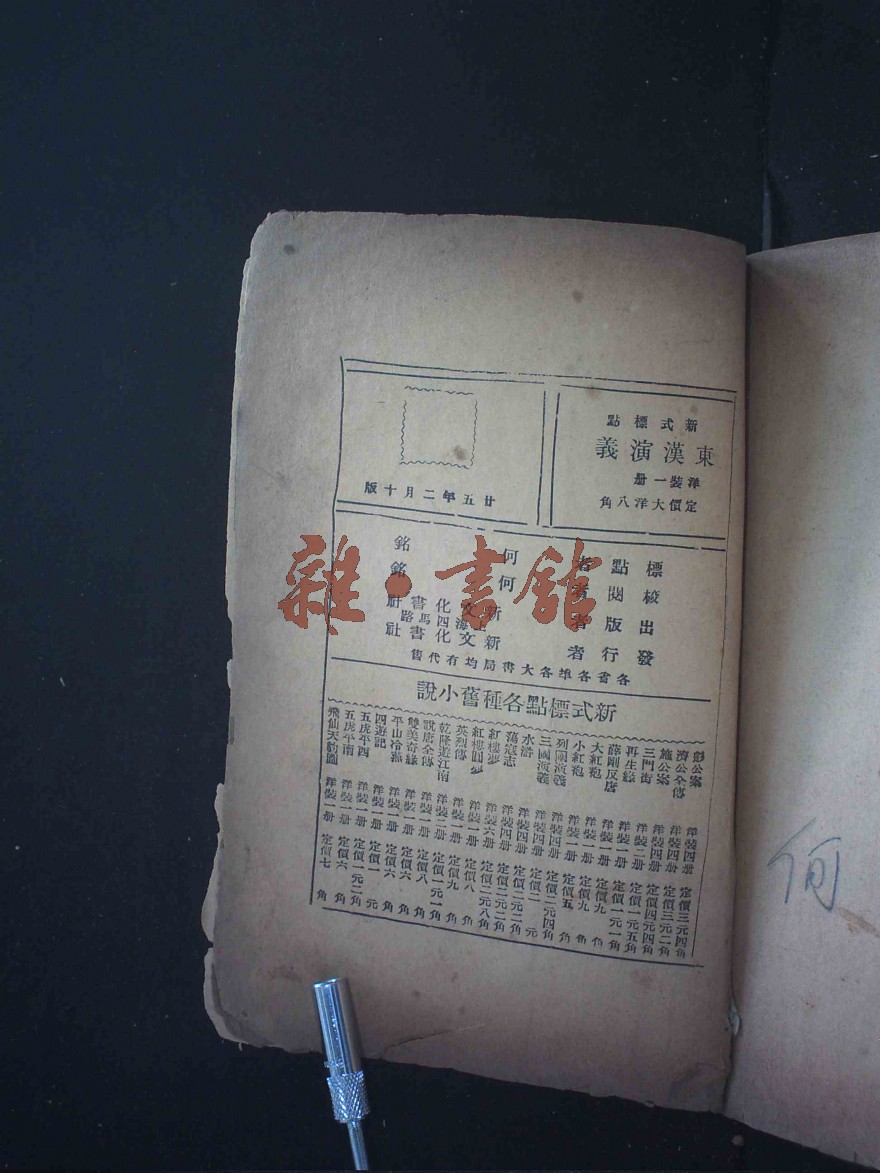 新式標點
東漢演義
洋裝一册
定價大洋八角
廿五年二月十版
標點者 何銘
校閱者 何銘
出版者 新文化書社
上海四馬路
發行者 新文化書社
各省各埠各大書局均有代售
新式標點各種舊小說
彭公案 洋裝四册 定價三元四角
濟公全傳 洋裝四册 定價三元二角
施公案 洋裝四册 定價四元四角
三門街 洋裝二册 定價一元五角
再生緣 洋裝一册 定價一元一角
薛剛反唐 洋裝一册 定價九角
大紅袍 洋裝一册 定價九角
小紅袍 洋裝一册 定價五角
列國演義 洋裝四册 定價二元四角
三國演義 洋裝四册 定價二元
水滸 洋裝四册 定價二元二角
蕩寇志 洋裝四册 定價二元二角
紅樓夢 洋裝六册 定價二元八角
紅樓圓夢 洋裝一册 定價八角
英烈傳 洋裝一册 定價九角
乾隆遊江南 洋裝二册 定價一元一角
說唐全傳 洋裝一册 定價八角
雙美奇緣 洋裝一册 定價六角
平山冷燕 洋裝一册 定價六角
四遊記 洋裝一册 定價一元
五虎平西 洋裝一册 定價一元二角
五虎平南 洋裝一册 定價六角
飛仙天豹圖 洋裝一册 定價七角
何
雜·書館